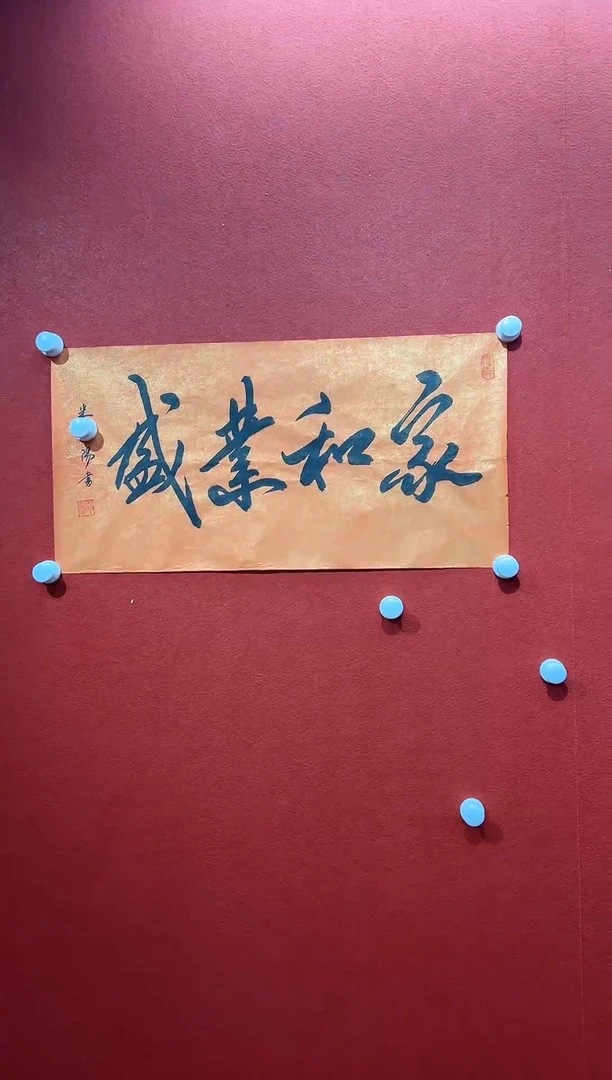 家和業盛
陽書